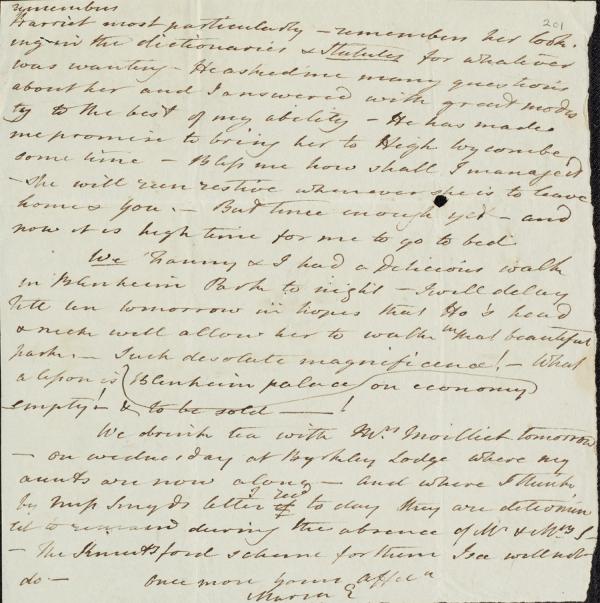 remembers
201
Harriet most particularly – remembers her look-
ing in the dictionaries & Statutes for whatever
was wanting – He asked me many questions
about her and I answered with great modes
ty to the best of my ability – He has made
me promise to bring her to High Wycombe
some time – Bless me how shall I manage it
– She will run restive whenever she is to leave
home & you. – But time enough yet – and
now it is high time for me to go to bed
We Fanny & I had a delicious walk
in Blenheim Park to night – I will delay
till ten tomorrow in hopes that Ho's head
& neck will allow her to walk in that beautiful
park. – Such desolate magnificence! – What
a lesson is (Blenheim palace) on economy
empty! & to be sold — !
We drink tea with Mrs Moilliet tomorrow
– on wednesday at Byrkeley Lodge where my
aunts are now along – and where I think
by Miss Sneyds letter I recd to day they are determin
ed to remain during the absence of Mr & Mrs S–
– The Knutsford scheme for them I see will not
do – once more yours affecn
Maria E